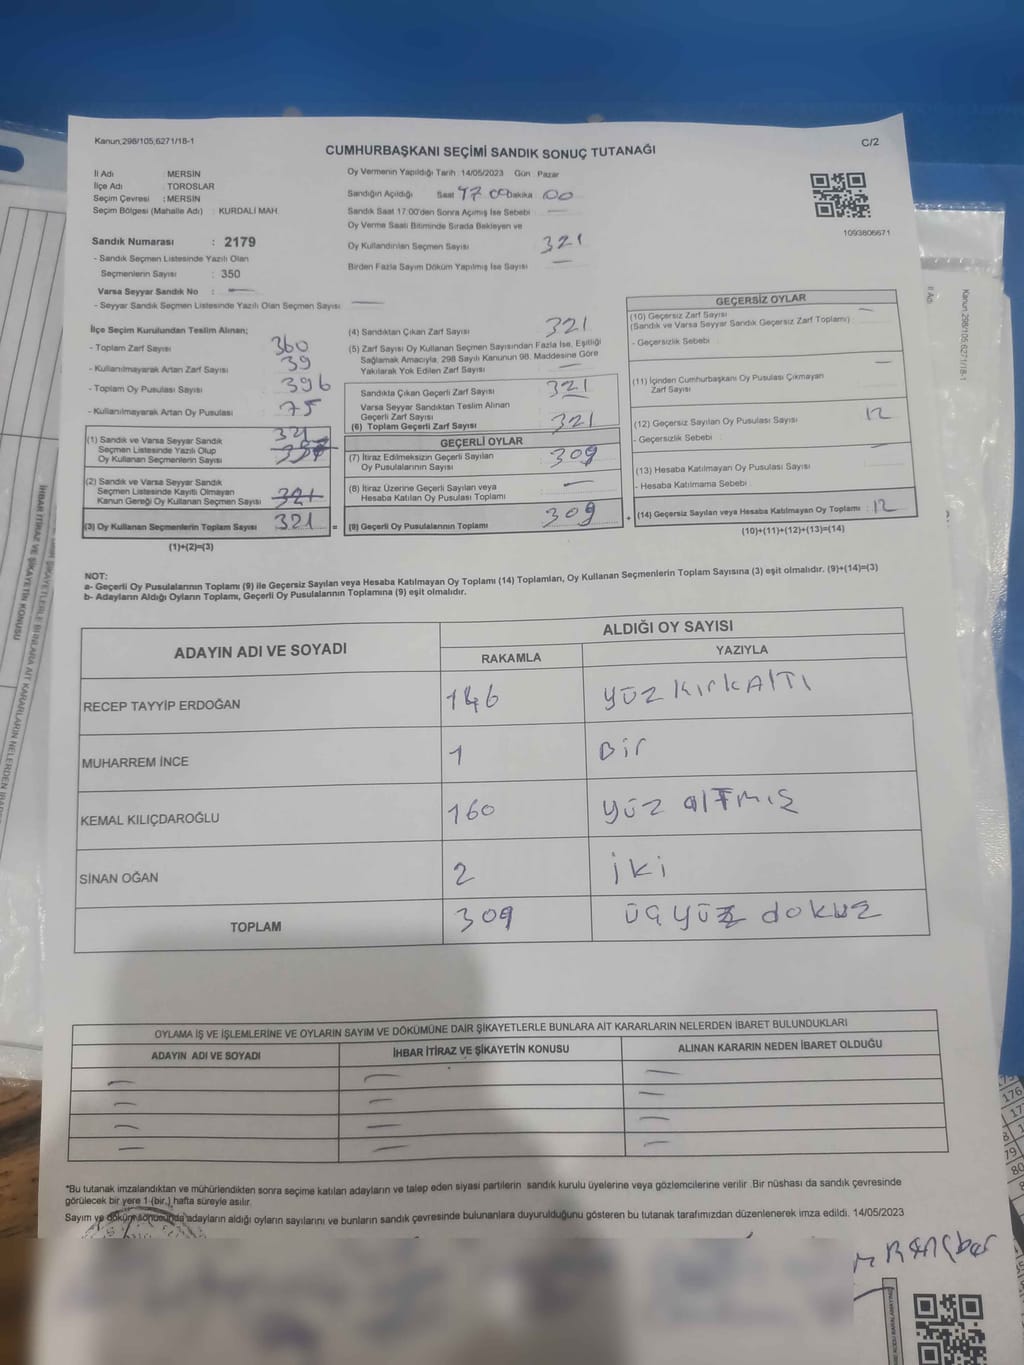 Kanun;298/105;6271/18-1
C/2
CUMHURBAŞKANI SEÇİMİ SANDIK SONUÇ TUTANAĞI
İl Adı : MERSİN
İlçe Adı : TOROSLAR
Seçim Çevresi : MERSİN
Seçim Bölgesi (Mahalle Adı) : KURDALİ MAH.
Sandık Numarası : 2179
- Sandık Seçmen Listesinde Yazılı Olan
Seçmenlerin Sayısı : 350
Varsa Seyyar Sandık No : —
- Seyyar Sandık Seçmen Listesinde Yazılı Olan Seçmen Sayısı —
Oy Vermenin Yapıldığı Tarih : 14/05/2023 Gün : Pazar
Sandığın Açıldığı Saat 17 00 Dakika 00
Sandık Saat 17.00'den Sonra Açımış İse Sebebi —
Oy Verme Saati Bitiminde Sırada Bekleyen ve
Oy Kullandırılan Seçmen Sayısı 321
Birden Fazla Sayım Döküm Yapılmış İse Sayısı —
1093806671
İlçe Seçim Kurulundan Teslim Alınan;
- Toplam Zarf Sayısı 360
- Kullanılmayarak Artan Zarf Sayısı 39
- Toplam Oy Pusulası Sayısı 396
- Kullanılmayarak Artan Oy Pusulası 75
(1) Sandık ve Varsa Seyyar Sandık 321
Seçmen Listesinde Yazılı Olup
Oy Kullanan Seçmenlerin Sayısı
(2) Sandık ve Varsa Seyyar Sandık
Seçmen Listesinde Kayıtlı Olmayan
Kanun Gereği Oy Kullanan Seçmen Sayısı 321
(3) Oy Kullanan Seçmenlerin Toplam Sayısı 321 =
(1)+(2)=(3)
(4) Sandıktan Çıkan Zarf Sayısı 321
(5) Zarf Sayısı Oy Kullanan Seçmen Sayısından Fazla İse, Eşitliği
Sağlamak Amacıyla, 298 Sayılı Kanunun 98. Maddesine Göre
Yakılarak Yok Edilen Zarf Sayısı —
Sandıkta Çıkan Geçerli Zarf Sayısı 321
Varsa Seyyar Sandıktan Teslim Alınan
Geçerli Zarf Sayısı —
(6) Toplam Geçerli Zarf Sayısı 321
GEÇERLİ OYLAR
(7) İtiraz Edilmeksizin Geçerli Sayılan
Oy Pusulalarının Sayısı 309
(8) İtiraz Üzerine Geçerli Sayılan veya
Hesaba Katılan Oy Pusulası Toplamı —
(9) Geçerli Oy Pusulalarının Toplamı 309 +
GEÇERSİZ OYLAR
(10) Geçersiz Zarf Sayısı —
(Sandık ve Varsa Seyyar Sandık Geçersiz Zarf Toplamı)
- Geçersizlik Sebebi :
(11) İçinden Cumhurbaşkanı Oy Pusulası Çıkmayan —
Zarf Sayısı
(12) Geçersiz Sayılan Oy Pusulası Sayısı 12
- Geçersizlik Sebebi :
(13) Hesaba Katılmayan Oy Pusulası Sayısı —
- Hesaba Katılmama Sebebi :
(14) Geçersiz Sayılan veya Hesaba Katılmayan Oy Toplamı : 12
(10)+(11)+(12)+(13)=(14)
NOT:
a- Geçerli Oy Pusulalarının Toplamı (9) ile Geçersiz Sayılan veya Hesaba Katılmayan Oy Toplamı (14) Toplamları, Oy Kullanan Seçmenlerin Toplam Sayısına (3) eşit olmalıdır. (9)+(14)=(3)
b- Adayların Aldığı Oyların Toplamı, Geçerli Oy Pusulalarının Toplamına (9) eşit olmalıdır.
ADAYIN ADI VE SOYADI
ALDIĞI OY SAYISI
RAKAMLA YAZIYLA
RECEP TAYYİP ERDOĞAN 146 yüz kırk altı
MUHARREM İNCE 1 Bir
KEMAL KILIÇDAROĞLU 160 yüz altmış
SİNAN OĞAN 2 iki
TOPLAM 309 üç yüz dokuz
OYLAMA İŞ VE İŞLEMLERİNE VE OYLARIN SAYIM VE DÖKÜMÜNE DAİR ŞİKAYETLERLE BUNLARA AİT KARARLARIN NELERDEN İBARET BULUNDUKLARI
ADAYIN ADI VE SOYADI İHBAR İTİRAZ VE ŞİKAYETİN KONUSU ALINAN KARARIN NEDEN İBARET OLDUĞU
— — —
— — —
— — —
— — —
*Bu tutanak imzalandıktan ve mühürlendikten sonra seçime katılan adayların ve talep eden siyasi partilerin sandık kurulu üyelerine veya gözlemcilerine verilir .Bir nüshası da sandık çevresinde
görülecek bir yere 1 (bir.) hafta süreyle asılır.
Sayım ve döküm sonucunda adayların aldığı oyların sayılarını ve bunların sandık çevresinde bulunanlara duyurulduğunu gösteren bu tutanak tarafımızdan düzenlenerek imza edildi. 14/05/2023
İHBAR İTİRAZ VE ŞİKAYETİN KONUSU
İl Adı
Kanun;298/105;6271/18-1
176